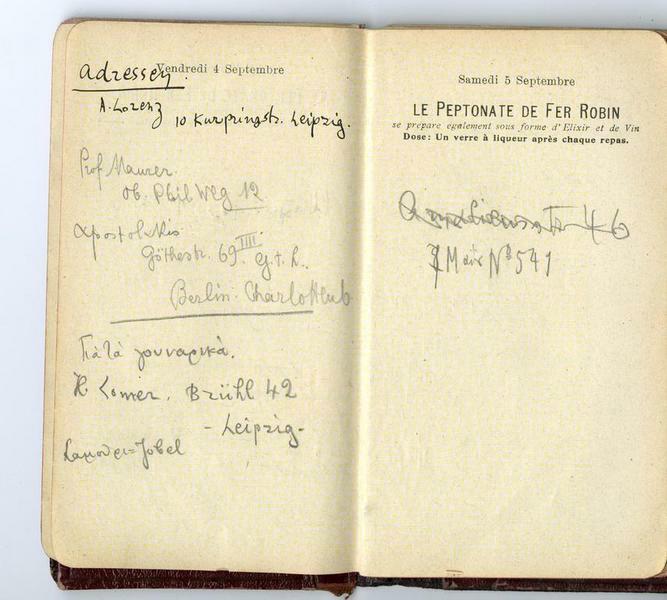 Vendredi 4 Septembre
Adressen
A. Lorenz
10 Kurprinzstr. Leipzig.
Prof Maurer.
Ob. Phil Weg 12
Apostolakis
Göthestr. 69 III
Berlin-Charlottenb
Γιὰ τὰ γουναρικά.
Lomer, Brühl 42
- Leipzig -
Σαμουρι = Zobel
Samedi 5 Septembre
LE PEPTONATE DE FER ROBIN
se prépare également sous forme d'Elixir et de Vin
Dose: Un verre à liqueur après chaque repas.
46
7 Mai No 541